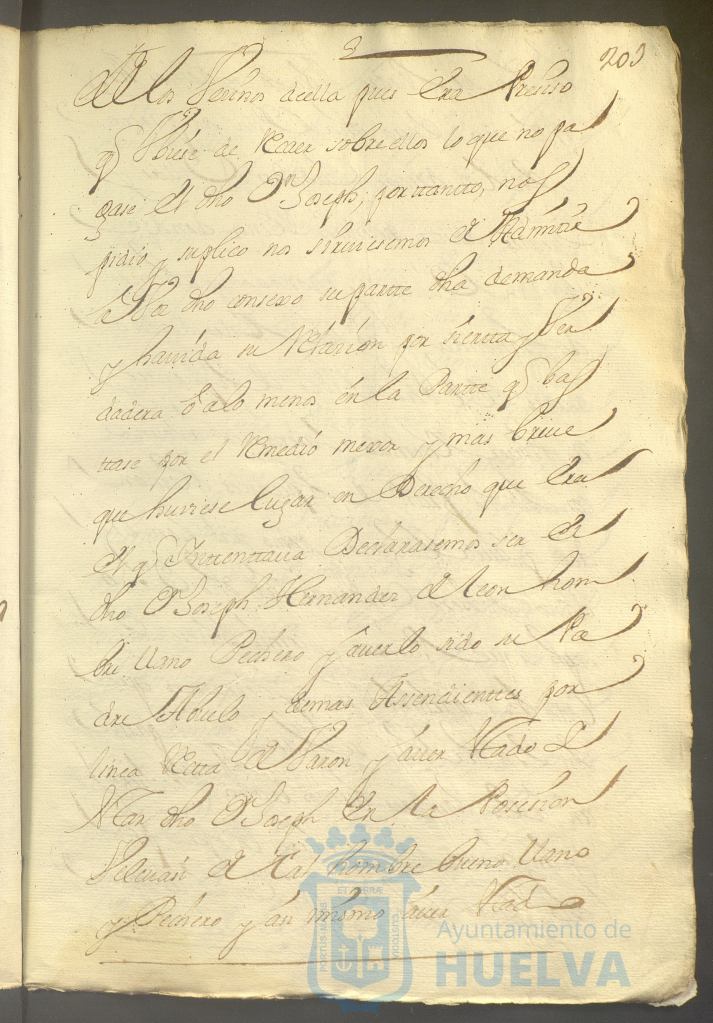 203
de los Vecinos della pues era Presiso
q Vbiese de Recaer sobre ellos lo que no pa
gase el dho Dn Joseph, por ttantto, nos
pidio y suplico nos sirviesemos de Admitir
a dho consexo su partte dha demanda
y havida su Relasion por sierta y Ver
dadera o a lo menos en la Partte q bas
ttase por el Remedio mexor y mas breve
que huviese lugar en Derecho que era
el q Inttenttava Declarasemos ser el
dho Dn Joseph Hernandez de leon hom
bre llano Pechero y aver lo sido su Pa
dre Abuelo y demas Assendienttes por
linea Recta de Varon y aver stado
dho Dn Joseph En la Posesion
de tal hombre bueno llano
y Pechero y asi mismo aver
Ayuntamiento de
HUELVA